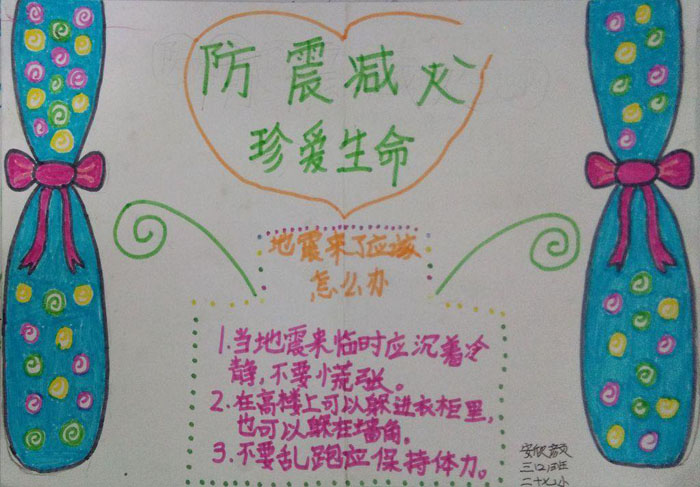 防震减火
珍爱生命
地震来了应该
怎么办
1.当地震来临时应沉着冷
静,不要慌张。
2.在高楼上可以躲进衣柜里,
也可以躲在墙角。
3.不要乱跑应保持体力。
三(2)班